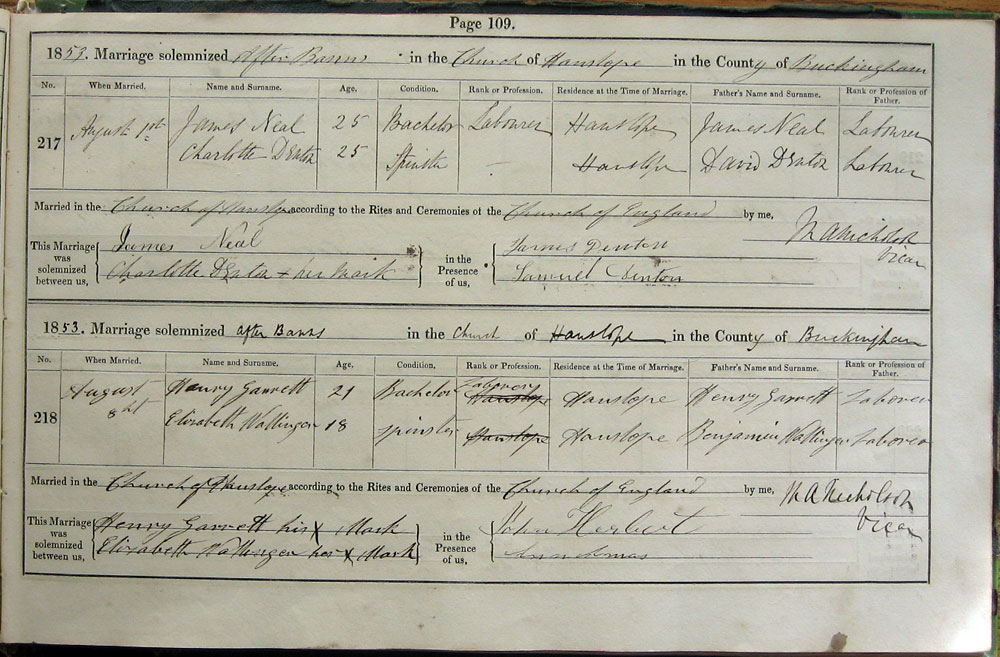 Page 109.
1853. Marriage solemnized After Banns in the Church of Hanslope in the County of Buckingham
No. When Married. Name and Surname. Age. Condition. Rank or Profession. Residence at the Time of Marriage. Father's Name and Surname. Rank or Profession of Father.
217 August 1st James Neal 25 Bachelor Labourer Hanslope James Neal Labourer
Charlotte Denton 25 Spinster - Hanslope David Denton Labourer
Married in the Church of Hanslope according to the Rites and Ceremonies of the Church of England by me, M A Nicholson
Vicar
This Marriage was solemnized between us, James Neal in the Presence of us, James Denton
Charlotte Denton + her Mark Samuel Denton
1853. Marriage solemnized after Banns in the Church of Hanslope in the County of Buckingham
No. When Married. Name and Surname. Age. Condition. Rank or Profession. Residence at the Time of Marriage. Father's Name and Surname. Rank or Profession of Father.
218 August 8ht Henry Garrett 21 Bachelor Laborer Hanslope Hanslope Henry Garrett Laborer
Elizabeth Wallinger 18 spinster Hanslope Hanslope Benjamin Wallinger Laborer
Married in the Church of Hanslope according to the Rites and Ceremonies of the Church of England by me, M A Nicholson
Vicar
This Marriage was solemnized between us, Henry Garrett his X Mark in the Presence of us, John Herbert
Elizabeth Wallinger her X Mark